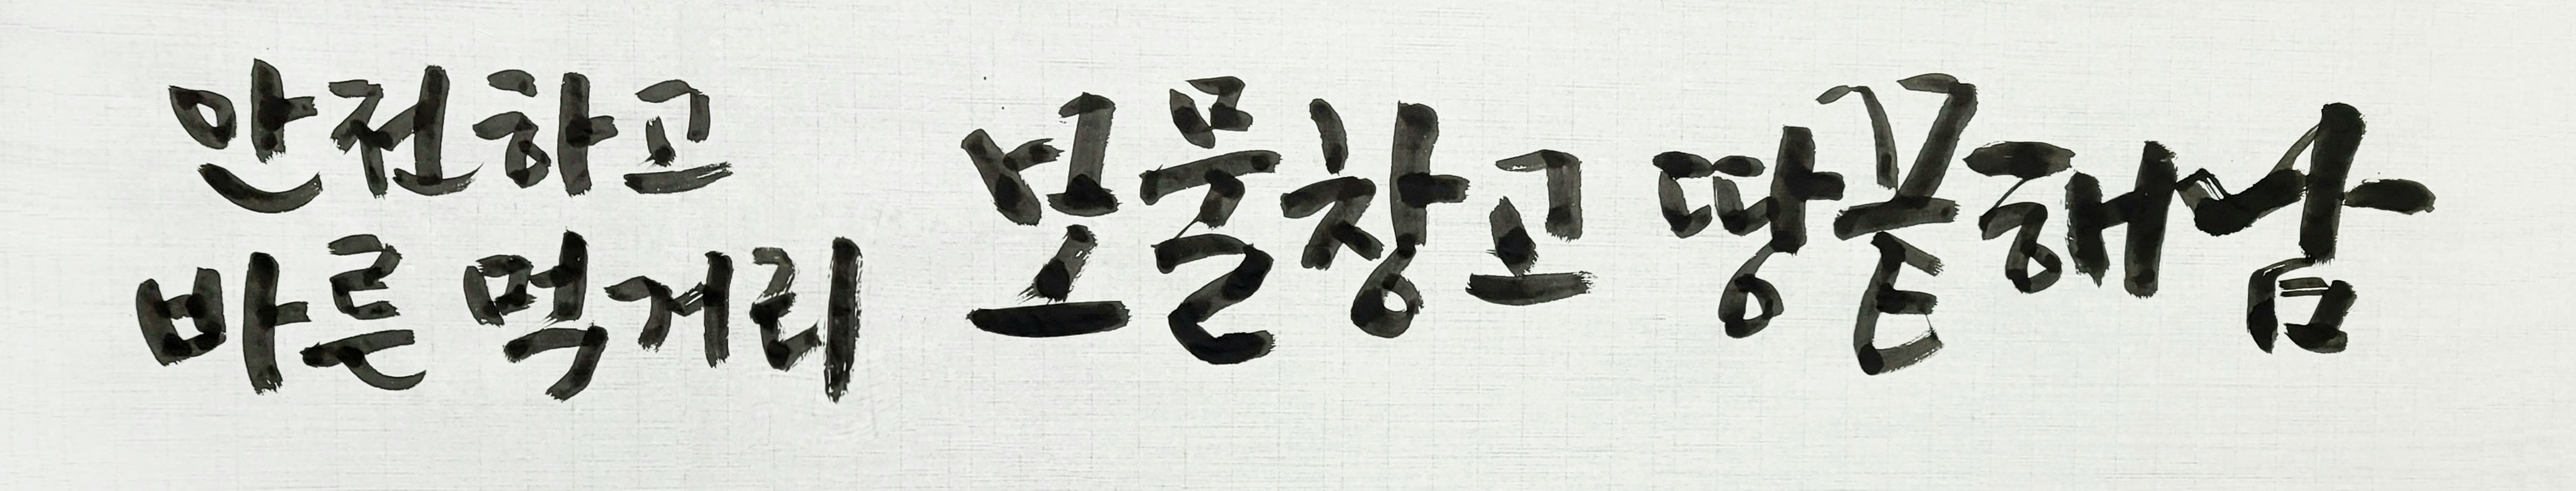 안전하고
바른 먹거리
보물창고 땅끝해남